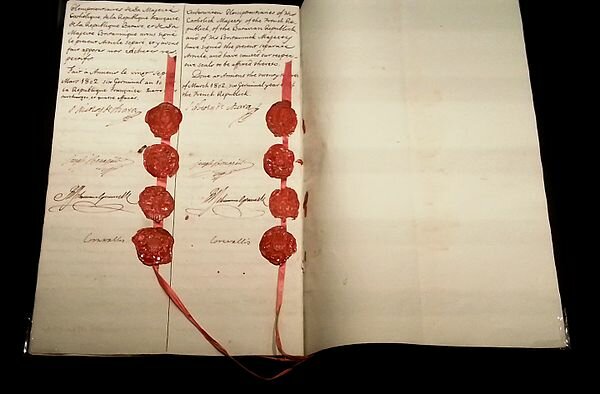 Plenipotentiaires de Sa Majesté
Catholique de la République française
de la République Batave, et de Sa
Majesté Britannique avons signé
le present Article séparé, et y avons
fait apposer nos cachets
Fait à Amiens le vingt sept
Mars 1802 six Germinal an 10
la République française
J. Nicolas de Azara
Joseph Bonaparte
R J Schimmelpenninck
Cornwallis
undersigned Plenipotentiaries of His
Catholick Majesty of the French Republick
of the Batavian Republick
and of His Britannick Majesty
have signed the present separate
Article, and have caused our respective
seals to be affixed thereto.
Done at Amiens the twenty seven
of March 1802 six Germinal year 10 of
the French Republick
J. Nicolas de Azara
Joseph Bonaparte
R J Schimmelpenninck
Cornwallis